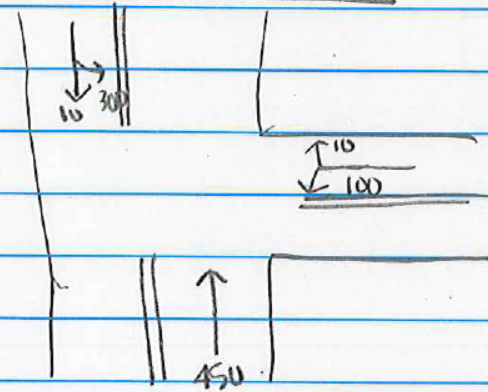 10 300
10
100
450